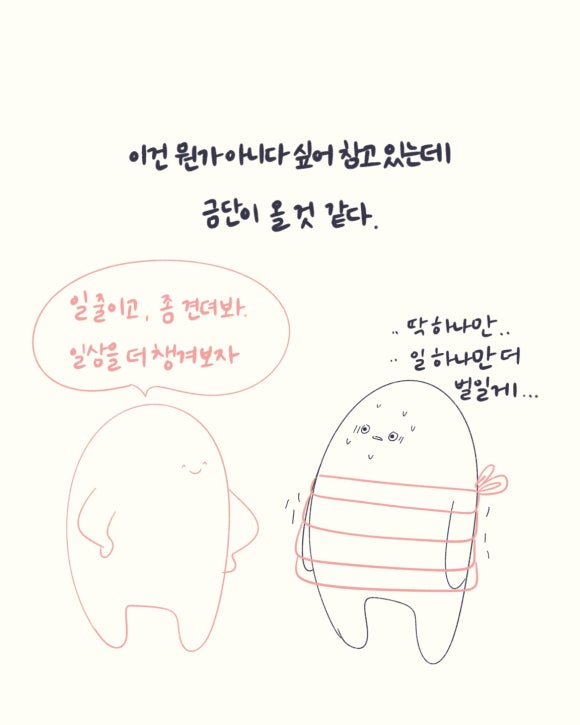 이건 뭔가 아니다 싶어 참고 있는데
금단이 올 것 같다.
일 줄이고, 좀 견뎌봐.
일상을 더 챙겨보자
.. 딱 하나만..
.. 일 하나만 더
벌일게...